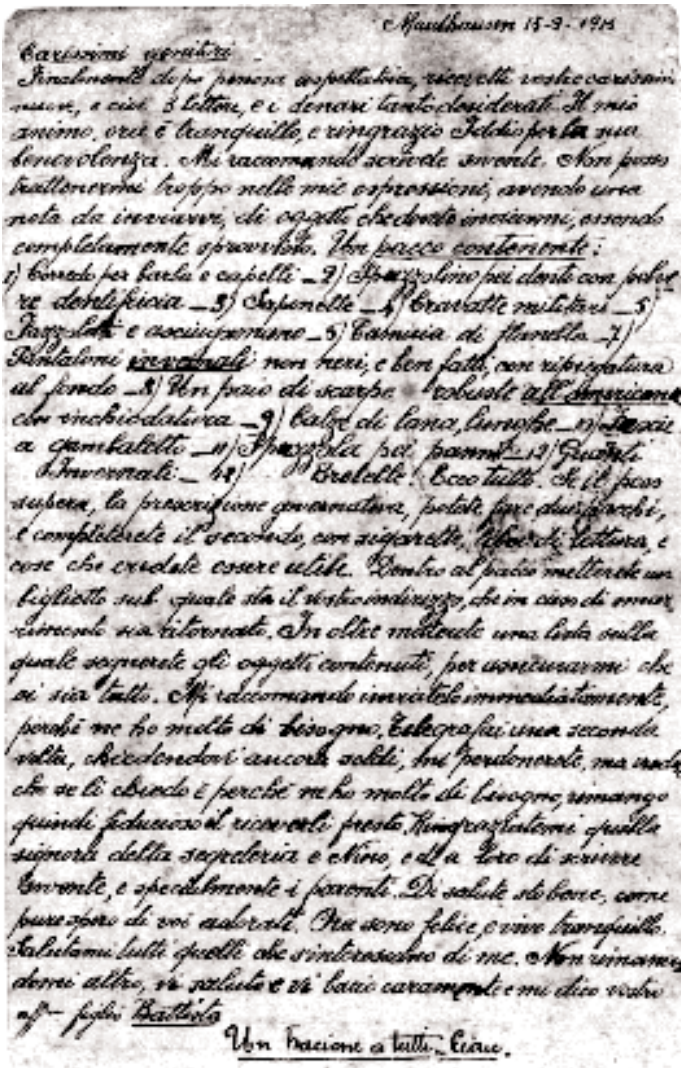 Mauthausen 15-9-191
Carissimi genitori
Finalmente dopo penosa aspettativa, ricevetti vostre carissime
nuove, e cioè 3 lettere, e i denari tanto desiderati. Il mio
animo, ora è tranquillo, e ringrazio Iddio per la sua
benevolenza. Mi raccomando scrivete sovente. Non posso
trattenermi troppo nelle mie espressioni, avendo una
nota da inviarvi, di oggetti che dovete inviarmi, essendo
completamente sprovvisto. Un pacco contenente:
1) Corredo per barba e capelli _ 2) Spazzolino pei denti con polve
re dentificia _ 3) Saponette _ 4) Cravatte militari _ 5)
Fazzoletti e asciugamano _ 5) Camicia di flanella _ 7)
Pantaloni invernali non neri, e ben fatti, con ripiegatura
al fondo _ 8) Un paio di scarpe robuste all'americana
con inchiodatura _ 9) Calze di lana, lunghe _ 10) Fascie
a gambaletto _ 11) Spazzola pei panni _ 12) Guanti
Invernali _ 12) Bretelle. Ecco tutto. Se il peso
supera, la prescrizione governativa, potete fare due pacchi,
e completerete il secondo, con sigarette, libri di lettura, e
cose che credete essere utile. Dentro al pacco metterete un
biglietto sul quale sta il vostro indirizzo, che in caso di smar
rimento sia ritornato. In oltre metterete una lista sulla
quale segnerete gli oggetti contenuti, per assicurarmi che
ci sia tutto. Mi raccomando inviatelo immediatamente,
perchè ne ho molto di bisogno. Telegrafai una seconda
volta, chiedendovi ancora soldi, mi perdonerete, ma credete
che se li chiedo è perchè ne ho molto di bisogno, rimango
quindi fiducioso il riceverli presto. Ringraziatemi quella
signora della segreteria e Nino, ed a loro di scrivere
sovente, e specialmente i parenti. Di salute sto bene, come
pure spero di voi adorati. Ora sono felice, e vivo tranquillo.
Salutami tutti quelli che s'interessano di me. Non rimanen
domi altro, vi saluto e vi bacio caramente e mi dico vostro
aff- figlio Battista
Un bacione a tutti. Ciao.